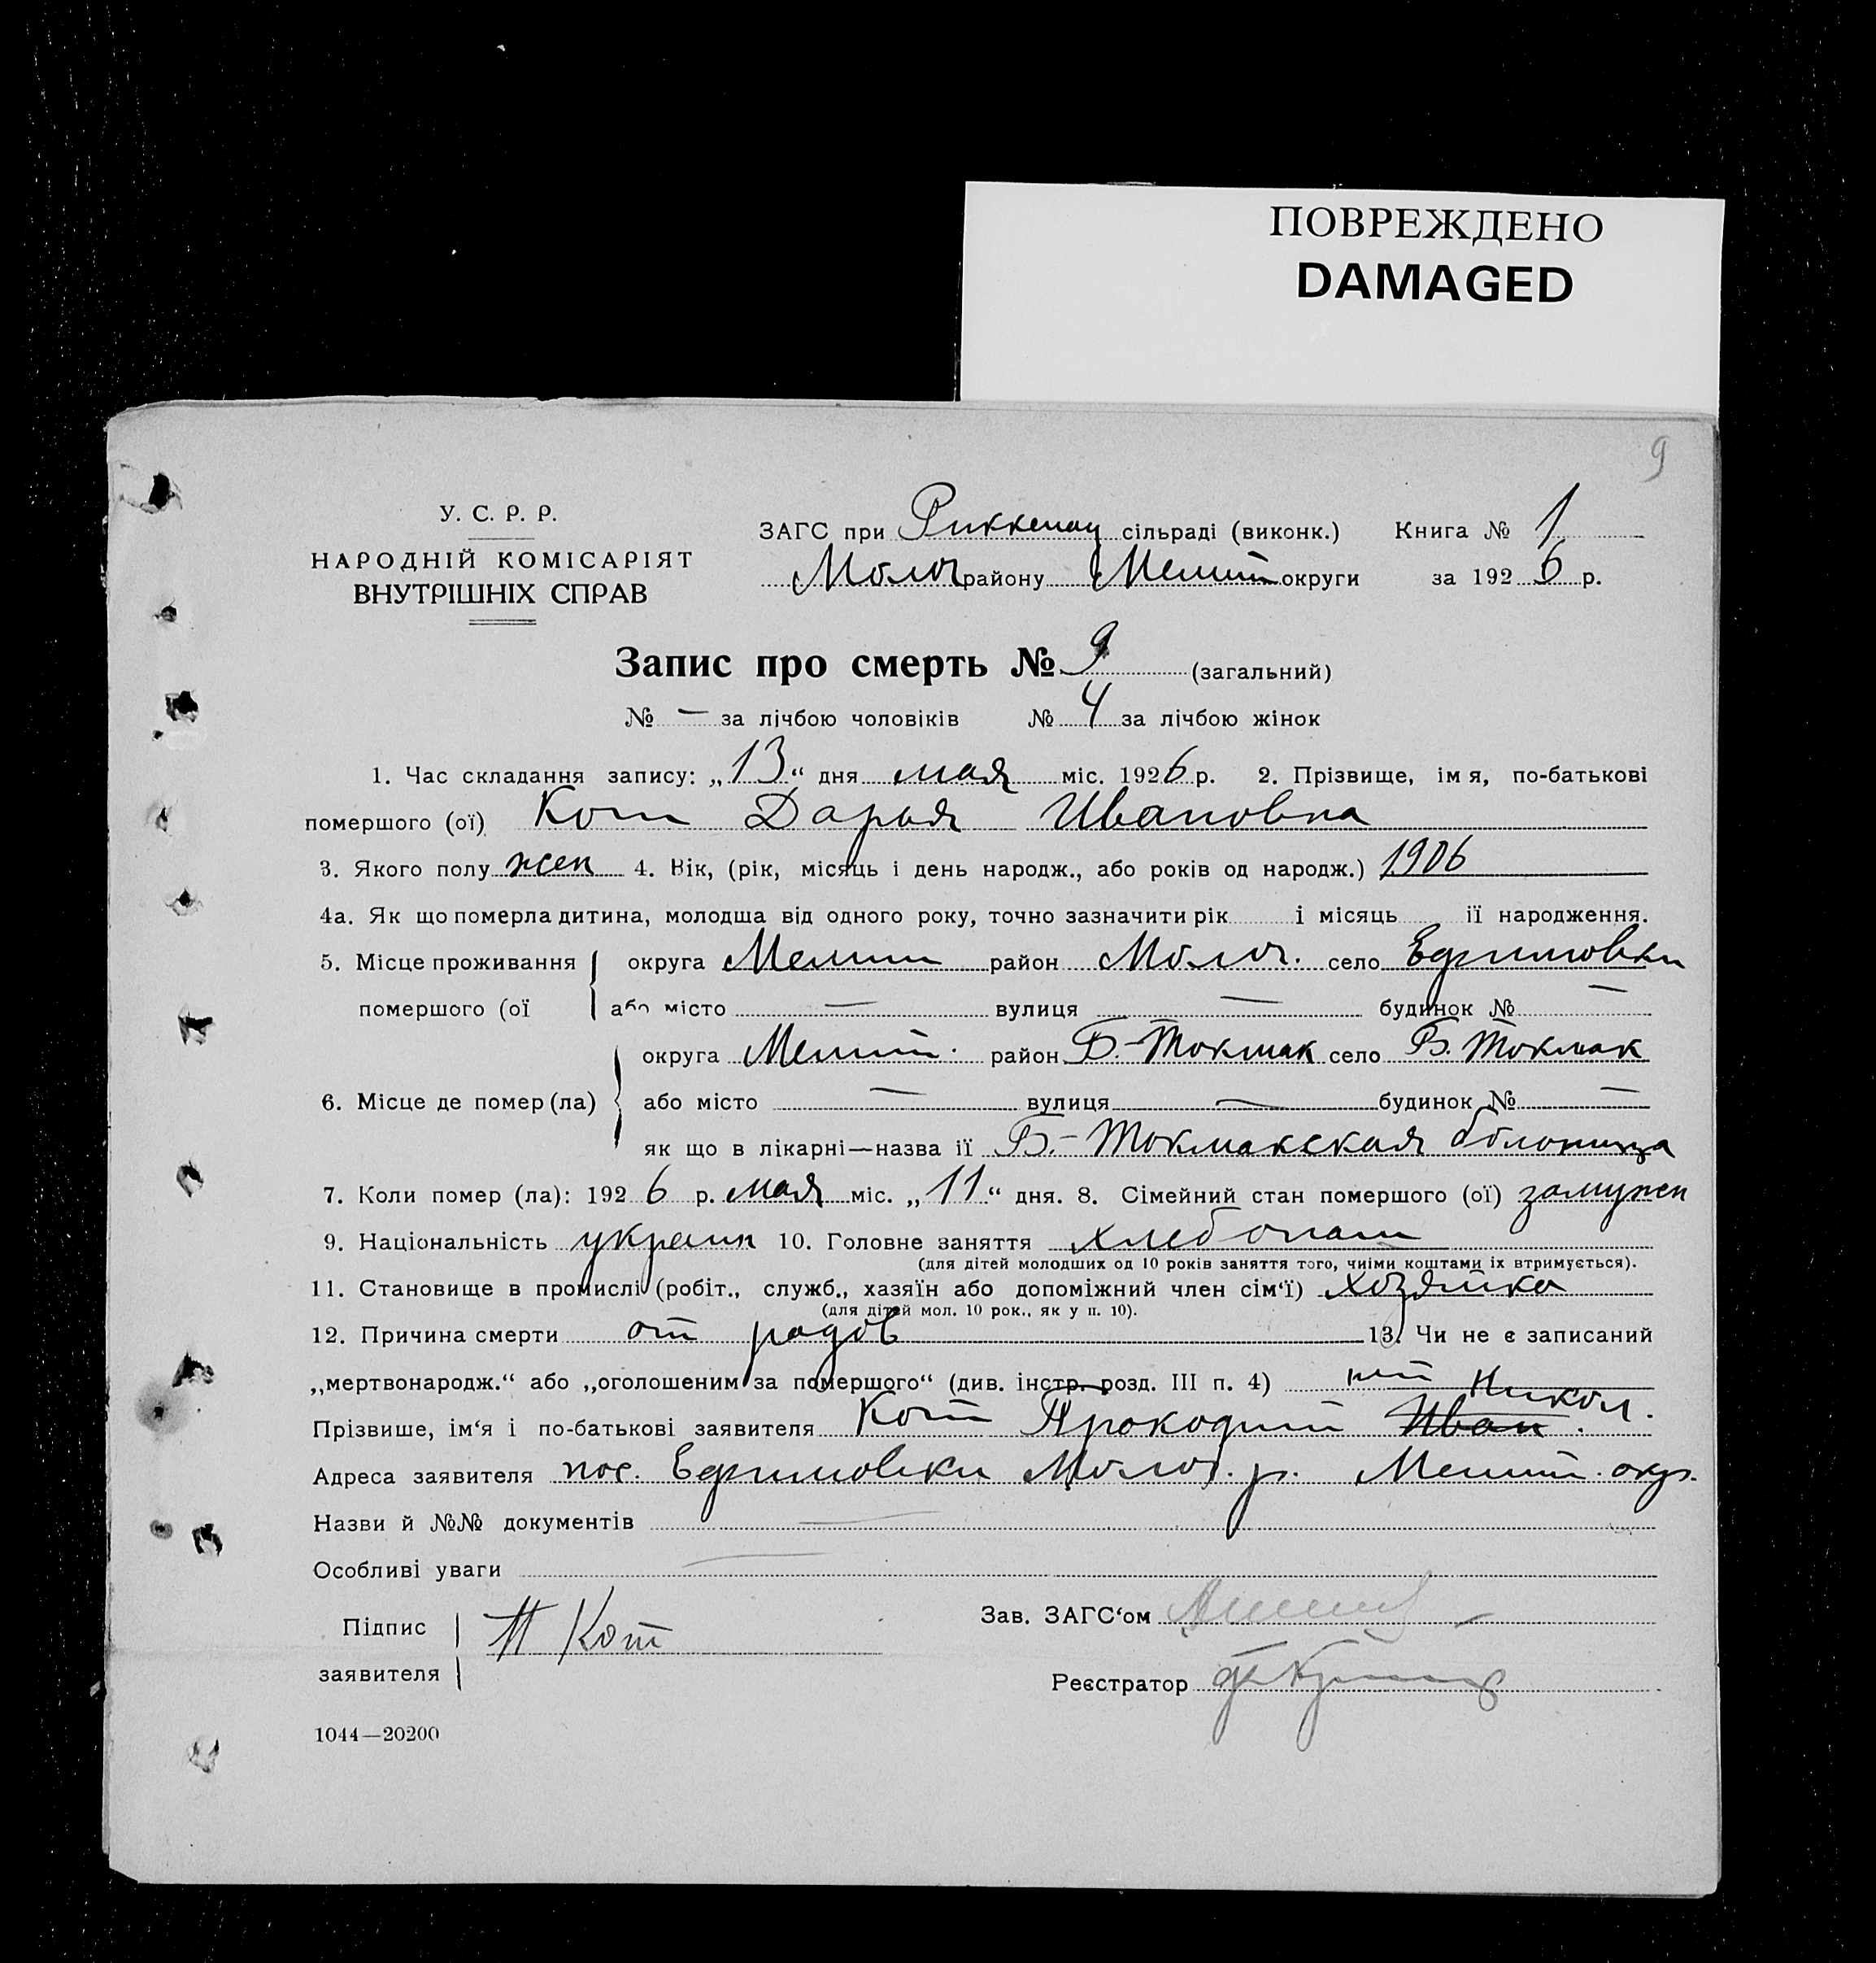 ПОВРЕЖДЕНО
DAMAGED
9
У. С. Р. Р.
НАРОДНІЙ КОМІСАРІЯТ
ВНУТРІШНІХ СПРАВ
ЗАГС при Риккенау сільраді (виконк.) Книга № 1
Молоч району Мелит округи за 1926 р.
Запис про смерть № 9 (загальний)
№ — за лічбою чоловіків № 4 за лічбою жінок
1. Час складання запису: „13“ дня мая міс. 1926 р. 2. Прізвище, імя, по-батькові
помершого (ої) Кот Дарья Ивановна
3. Якого полу жен 4. Вік, (рік, місяць і день народж., або років од народж.) 1906
4а. Як що померла дитина, молодша від одного року, точно зазначити рік і місяць її народження.
5. Місце проживання округа Мелит район Молоч. село Ефимовки
помершого (ої або місто — вулиця — будинок № —
округа Мелит. район Б.-Токмак село Б. Токмак
6. Місце де помер (ла) або місто — вулиця — будинок № —
як що в лікарні—назва її Б.-Токмакская больница
7. Коли помер (ла): 1926 р. мая міс. „11“ дня. 8. Сімейний стан помершого (ої) замужен
9. Національність украин 10. Головне заняття хлебопаш
(для дітей молодших од 10 років заняття того, чиіми коштами іх втримується).
11. Становище в промислі (робіт., служб., хазяїн або допоміжний член сім‘ї) хозяйка
(для дітей мол. 10 рок., як у п. 10).
12. Причина смерти от родов 13. Чи не є записаний
„мертвонародж.“ або „оголошеним за помершого“ (див. інстр. розд. III п. 4) нет
Никол.
Прізвише, ім‘я і по-батькові заявителя Кот Прокофий Иван.
Адреса заявителя пос. Ефимовки Молоч. р. Мелит. окр.
Назви й №№ документів —
Особливі уваги —
Підпис заявителя П Кот
Зав. ЗАГС‘ом
Реєстратор
1044—20200